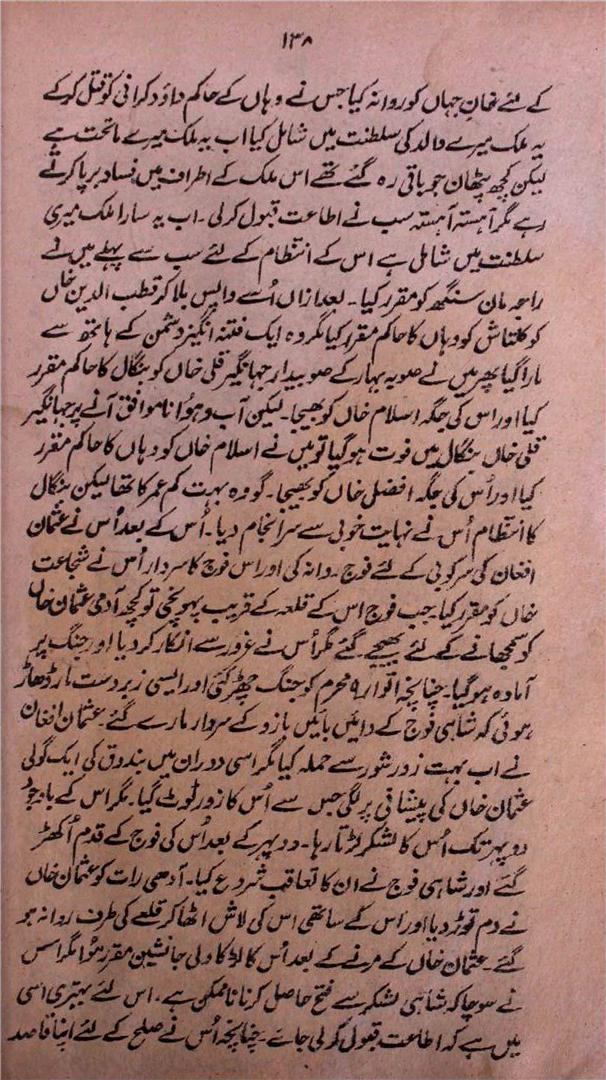 ۱۳۸
کے لئے خان جہاں کو روانہ کیا جس نے وہاں کے حاکم داؤد کرانی کو قتل کرکے
یہ ملک میرے والد کی سلطنت میں شامل کیا اب یہ ملک میرے ماتحت ہے
لیکن کچھ پٹھان جو باقی رہ گئے تھے اس ملک کے اطراف میں فساد برپا کرتے
رہے مگر آہستہ آہستہ سب نے اطاعت قبول کرلی ۔ اب یہ سارا ملک میری
سلطنت میں شامل ہے اس کے انتظام کے لئے سب سے پہلے میں نے
راجہ مان سنگھ کو مقرر کیا ۔ بعد ازاں اُسے واپس بلا کر قطب الدین خاں
کوکلتاش کو وہاں کا حاکم مقرر کیا مگر وہ ایک فتنہ انگیز دشمن کے ہاتھ سے
مارا گیا پھر میں نے صوبہ بہار کے صوبیدار جہانگیر قلی خاں کو بنگال کا حاکم مقرر
کیا اور اس کی جگہ اسلام خاں کو بھیجا ۔ لیکن آب و ہوا ناموافق آنے پر جہانگیر
قلی خاں بنگال میں فوت ہوگیا تو میں نے اسلام خاں کو وہاں کا حاکم مقرر
کیا اور اُس کی جگہ افضل خاں کو بھیجا ۔ گو وہ بہت کم عمر کا تھا لیکن بنگال
کا انتظام اُس نے نہایت خوبی سے سرانجام دیا ۔ اُس کے بعد اُس نے عثمان
افغان کی سرکوبی کے لئے فوج روانہ کی اور اس فوج کا سردار اُس نے شجاعت
خاں کو مقرر کیا ۔ جب فوج اس کے قلعہ کے قریب پہونچی تو کچھ آدمی عثمان خاں
کو سمجھانے کے لئے بھیجے گئے مگر اُس نے غرور سے انکار کردیا اور جنگ پر
آمادہ ہوگیا ۔ چنانچہ اتوار ۹ محرم کو جنگ چھڑ گئی اور ایسی زبردست مار دھاڑ
ہوئی کہ شاہی فوج کے دائیں بائیں بازو کے سردار مارے گئے ۔ عثمان افغان
نے اب بہت زور شور سے حملہ کیا مگر اسی دوران میں بندوق کی ایک گولی
عثمان خاں کی پیشانی پر لگی جس سے اُس کا زور ٹوٹ گیا ۔ مگر اس کے باوجود
دوپہر تک اُس کا لشکر لڑتا رہا ۔ دوپہر کے بعد اُس کی فوج کے قدم اُکھڑ
گئے اور شاہی فوج نے ان کا تعاقب شروع کیا ۔ آدھی رات کو عثمان خاں
نے دم توڑ دیا اور اس کے ساتھی اس کی لاش اٹھا کر قلعے کی طرف روانہ ہو
گئے ۔ عثمان خاں کے مرنے کے بعد اُس کا لڑکا ولی جانشین مقرر ہوا مگر اس
نے سوچا کہ شاہی لشکر سے فتح حاصل کرنا ناممکن ہے ، اس لئے بہتری اسی
میں ہے کہ اطاعت قبول کرلی جائے ۔ چنانچہ اُس نے صلح کے لئے اپنا قاصد